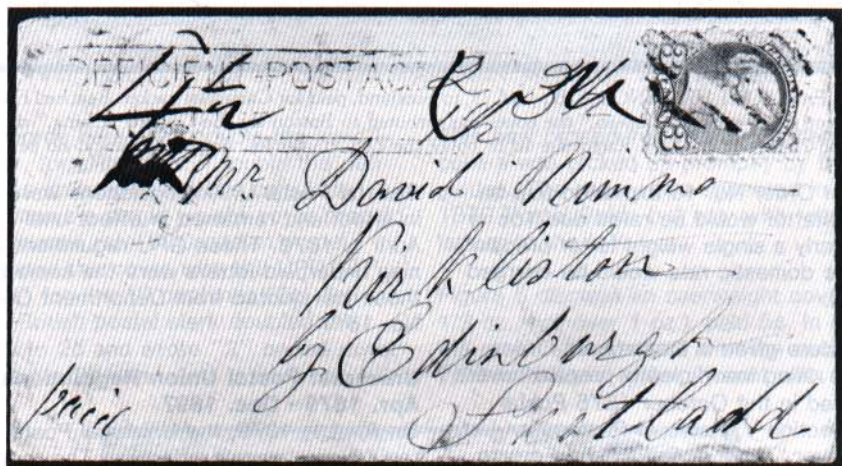 DEFICIENT POSTAGE
4½
3½
½
Mr. David Nimmo
Kirkliston
by Edinburgh
Scotland
paid